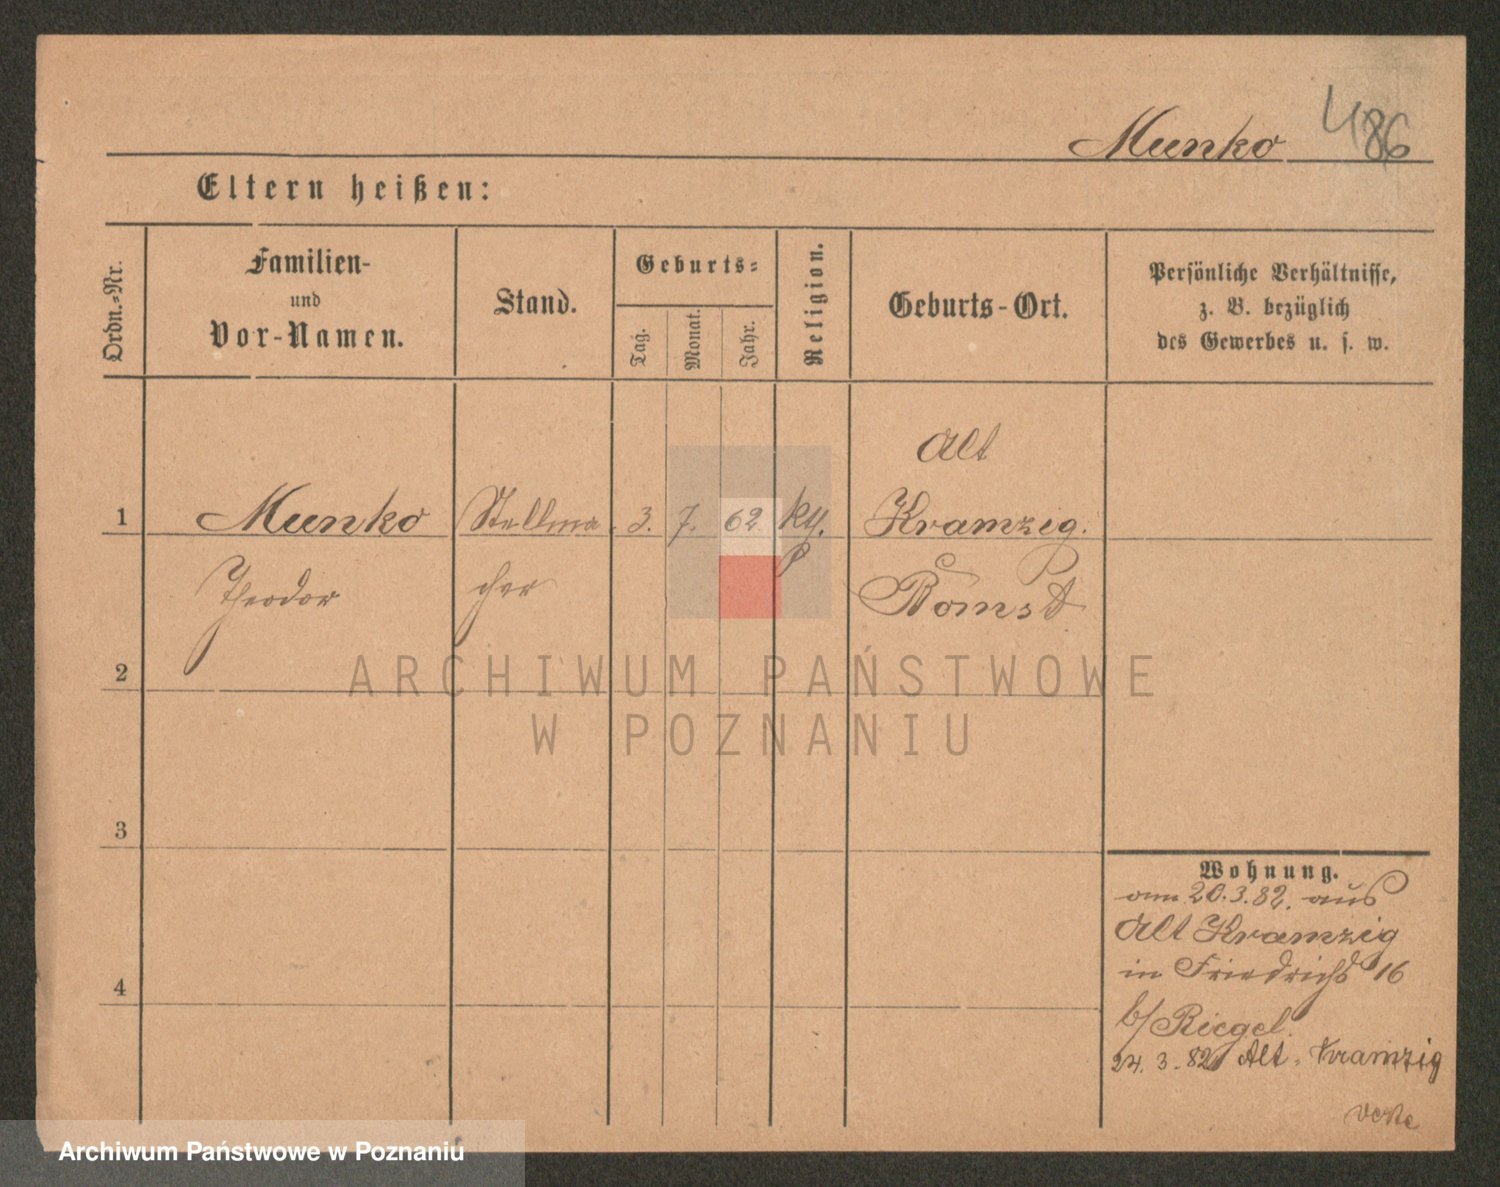 Munko 486
Eltern heißen:
Ordn.-Nr.
Familien-
und
Vor-Namen.
Stand.
Geburts-
Tag.
Monat.
Jahr.
Religion.
Geburts-Ort.
Persönliche Verhältnisse,
z. B. bezüglich
des Gewerbes u. s. w.
Alt
1 Munko Stellma 3. 7. 62 Kramzig.
Theodor cher Bomst
2
ARCHIWUM PAŃSTWOWE
W POZNANIU
3
Wohnung.
am 20.3.82. aus
Alt Kramzig
in Friedrichs 16
4
b/ Riegel.
24. 3. 82 Alt-Kramzig
Archiwum Państwowe w Poznaniu